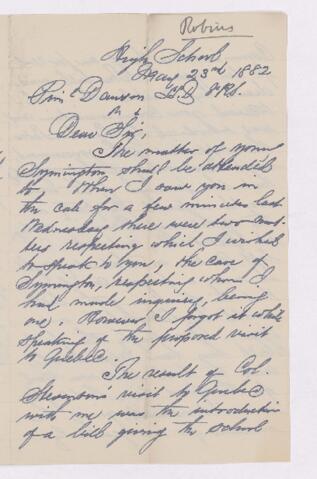 Robins
High School
May 23rd 1882
Prin. Dawson LL.D. F.R.S.
Dear Sir,
The matter of young
Symington shall be attended
to. When I saw you in
the cab for a few minutes last
Wednesday there were two mat-
ters respecting which I wished
to speak to you, the case of
Symington, respecting whom I
had made inquiry, being
one. However I forgot it while
speaking of the proposed visit
to Quebec.
The result of Col.
Stevenson's visit to Quebec
with me was the introduction
of a bill giving the school